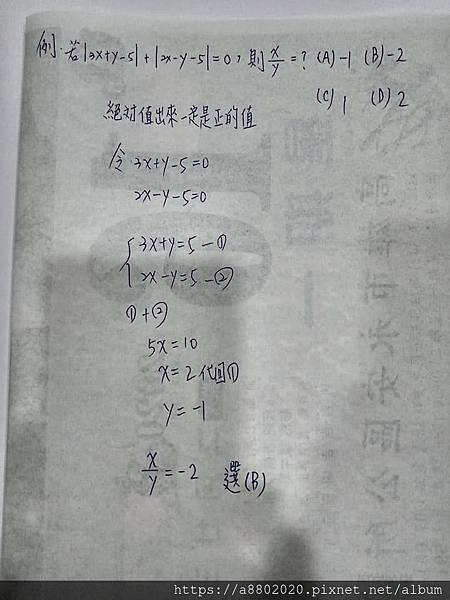 例. 若|3x+y-5|+|2x-y-5|=0, 則 x/y =? (A)-1 (B)-2
(C) 1 (D) 2
絕対值出來一定是正的值
令 3x+y-5=0
2x-y-5=0
{3x+y=5-①
{2x-y=5-②
①+②
5x=10
x=2代回①
y=-1
x/y=-2 選(B)
https://a8802020.pixnet.net/album